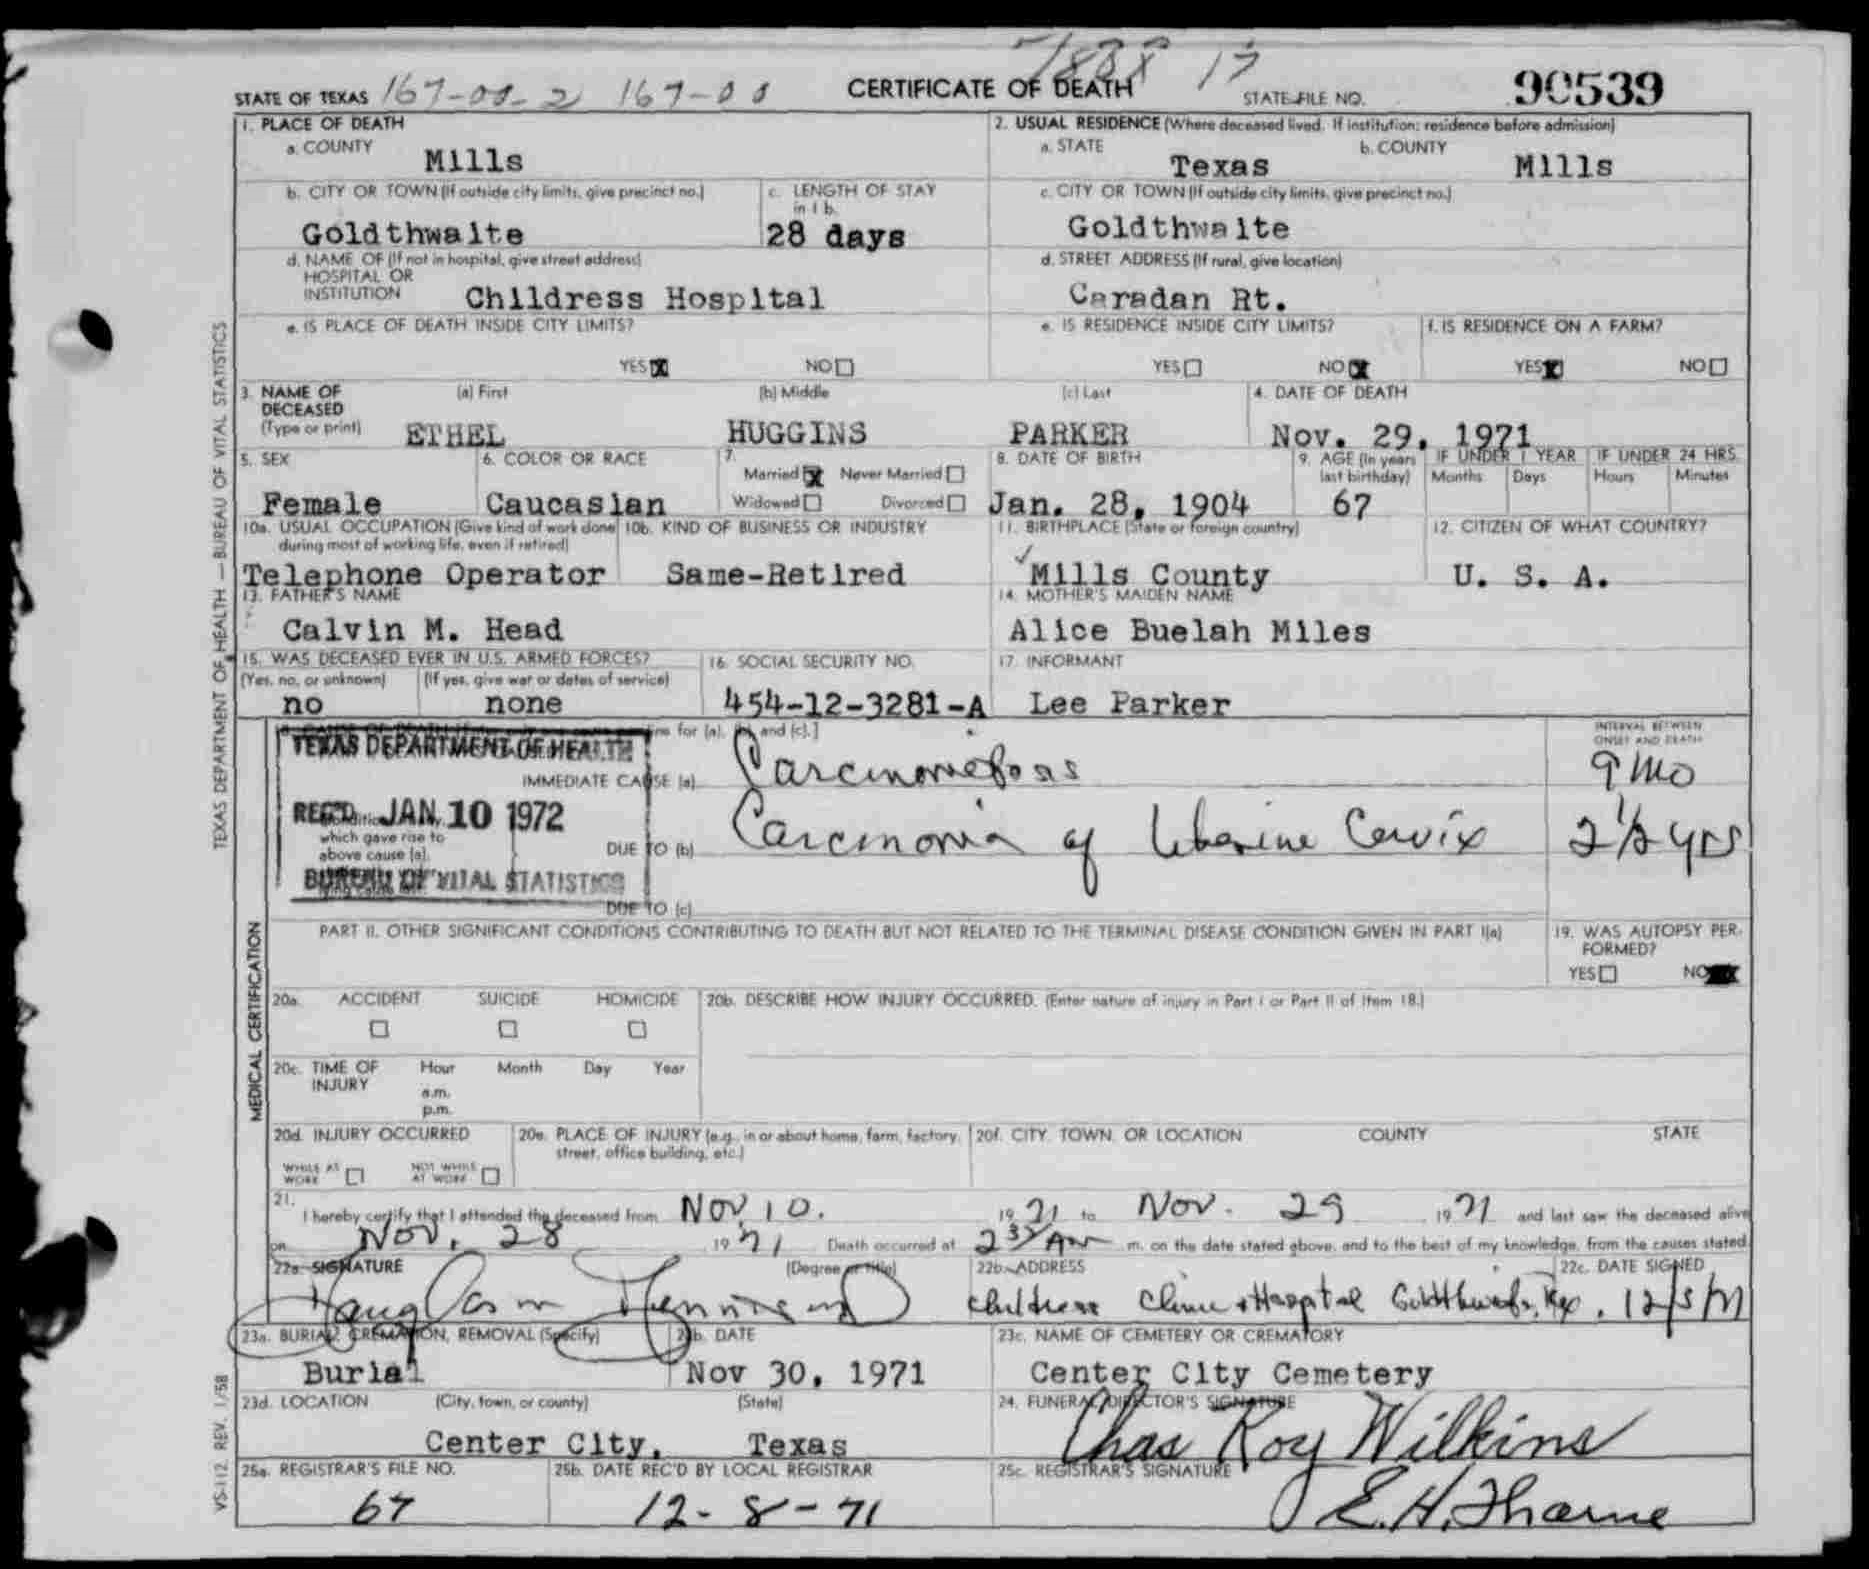 STATE OF TEXAS 167-00-2 167-00 CERTIFICATE OF DEATH 17 STATE FILE NO. 90539
1. PLACE OF DEATH
a. COUNTY Mills
2. USUAL RESIDENCE (Where deceased lived. If institution: residence before admission)
a. STATE Texas b. COUNTY Mills
b. CITY OR TOWN (If outside city limits, give precinct no.) Goldthwaite
c. LENGTH OF STAY in 1 b. 28 days
c. CITY OR TOWN (If outside city limits, give precinct no.) Goldthwaite
d. NAME OF (If not in hospital, give street address)
HOSPITAL OR
INSTITUTION Childress Hospital
d. STREET ADDRESS (If rural, give location)
Caradan Rt.
e. IS PLACE OF DEATH INSIDE CITY LIMITS?
YES X NO
e. IS RESIDENCE INSIDE CITY LIMITS?
YES NO X
f. IS RESIDENCE ON A FARM?
YES X NO
3. NAME OF DECEASED (Type or print)
(a) First (b) Middle (c) Last
ETHEL HUGGINS PARKER
4. DATE OF DEATH
Nov. 29, 1971
5. SEX
Female
6. COLOR OR RACE
Caucasian
7. Married X Never Married
Widowed Divorced
8. DATE OF BIRTH
Jan. 28, 1904
9. AGE (In years last birthday)
67
IF UNDER 1 YEAR
Months Days
IF UNDER 24 HRS.
Hours Minutes
10a. USUAL OCCUPATION (Give kind of work done during most of working life, even if retired)
Telephone Operator
10b. KIND OF BUSINESS OR INDUSTRY
Same-Retired
11. BIRTHPLACE (State or foreign country)
Mills County
12. CITIZEN OF WHAT COUNTRY?
U. S. A.
13. FATHER'S NAME
Calvin M. Head
14. MOTHER'S MAIDEN NAME
Alice Buelah Miles
15. WAS DECEASED EVER IN U.S. ARMED FORCES?
(Yes, no, or unknown) (If yes, give war or dates of service)
no none
16. SOCIAL SECURITY NO.
454-12-3281-A
17. INFORMANT
Lee Parker
for (a), (b) and (c).]
INTERVAL BETWEEN ONSET AND DEATH
TEXAS DEPARTMENT OF HEALTH
REC'D JAN 10 1972
BUREAU OF VITAL STATISTICS
IMMEDIATE CAUSE (a) Carcinometosis 9 mo
which gave rise to
above cause (a),
DUE TO (b) Carcinoma of Uterine Cervix 2 1/2 yrs
DUE TO (c)
PART II. OTHER SIGNIFICANT CONDITIONS CONTRIBUTING TO DEATH BUT NOT RELATED TO THE TERMINAL DISEASE CONDITION GIVEN IN PART I(a)
19. WAS AUTOPSY PERFORMED?
YES NO
20a. ACCIDENT SUICIDE HOMICIDE
20b. DESCRIBE HOW INJURY OCCURRED. (Enter nature of injury in Part I or Part II of Item 18.)
20c. TIME OF INJURY Hour Month Day Year
a.m.
p.m.
20d. INJURY OCCURRED
WHILE AT WORK NOT WHILE AT WORK
20e. PLACE OF INJURY (e.g., in or about home, farm, factory, street, office building, etc.)
20f. CITY, TOWN, OR LOCATION COUNTY STATE
21. I hereby certify that I attended the deceased from Nov. 10. 19 71 to Nov. 29 19 71 and last saw the deceased alive
on Nov. 28 19 71 Death occurred at 2 35 AM m. on the date stated above, and to the best of my knowledge, from the causes stated.
22a. SIGNATURE (Degree or title)
22b. ADDRESS
Childress Clinic & Hospital Goldthwaite, Tex.
22c. DATE SIGNED
12/5/71
23a. BURIAL, CREMATION, REMOVAL (Specify)
Burial
23b. DATE
Nov 30, 1971
23c. NAME OF CEMETERY OR CREMATORY
Center City Cemetery
23d. LOCATION (City, town, or county) (State)
Center City, Texas
24. FUNERAL DIRECTOR'S SIGNATURE
Chas Roy Wilkins
25a. REGISTRAR'S FILE NO.
67
25b. DATE REC'D BY LOCAL REGISTRAR
12-8-71
25c. REGISTRAR'S SIGNATURE
E.H. Thorne
TEXAS DEPARTMENT OF HEALTH — BUREAU OF VITAL STATISTICS
MEDICAL CERTIFICATION
VS-112 REV. 1/58